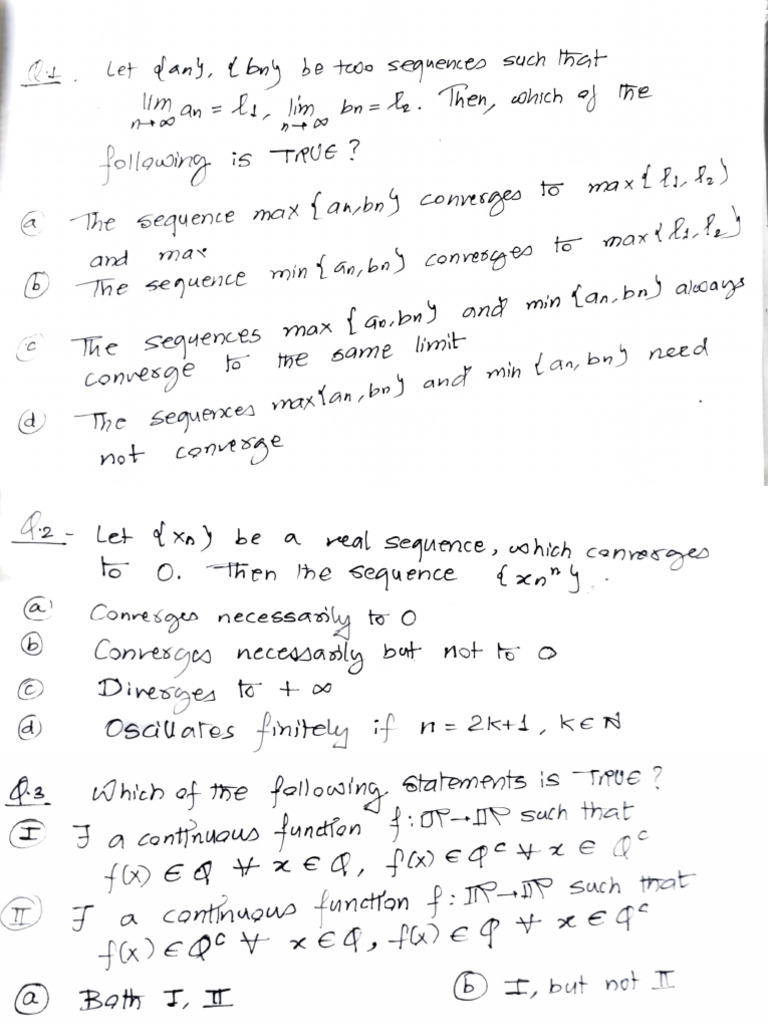 Q.1. Let {an}, {bn} be two sequences such that
lim n→∞ an = l1, lim n→∞ bn = l2. Then, which of the
following is TRUE?
(a) The sequence max {an,bn} converges to max{l1, l2}
and max
(b) The sequence min {an,bn} converges to max{l1,l2}
(c) The sequences max {an,bn} and min {an,bn} always
converge to the same limit
(d) The sequences max{an,bn} and min {an,bn} need
not converge
Q.2- Let {xn} be a real sequence, which converges
to 0. Then the sequence {xn^n}.
(a) Converges necessarily to 0
(b) Converges necessarily but not to 0
(c) Diverges to +∞
(d) Oscillates finitely if n = 2k+1, k∈N
Q.3 Which of the following statements is TRUE?
(I) ∃ a continuous function f:ℝ→ℝ such that
f(x) ∈ Q ∀ x ∈ Q, f(x) ∈ Q^c ∀ x ∈ Q^c
(II) ∃ a continuous function f: ℝ→ℝ such that
f(x) ∈ Q^c ∀ x ∈ Q, f(x) ∈ Q ∀ x ∈ Q^c
(a) Both I, II (b) I, but not II